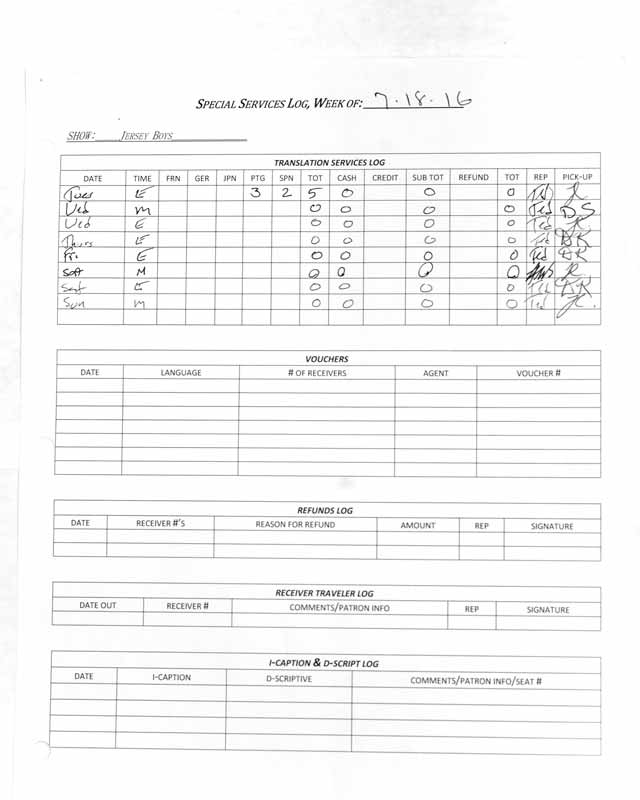 SPECIAL SERVICES LOG, WEEK OF: 7.18.16
SHOW: JERSEY BOYS
TRANSLATION SERVICES LOG
DATE TIME FRN GER JPN PTG SPN TOT CASH CREDIT SUB TOT REFUND TOT REP PICK-UP
Tues E 3 2 5 0 0 0 Ted
Wed M 0 0 0 0 Ted DS
Wed E 0 0 0 0 Ted
Thurs E 0 0 0 0 Ted DK
Fri E 0 0 0 0 Ted DK
Sat M 0 0 0 0
Sat E 0 0 0 0 Ted DK
Sun M 0 0 0 0 Ted
VOUCHERS
DATE LANGUAGE # OF RECEIVERS AGENT VOUCHER #
REFUNDS LOG
DATE RECEIVER #'S REASON FOR REFUND AMOUNT REP SIGNATURE
RECEIVER TRAVELER LOG
DATE OUT RECEIVER # COMMENTS/PATRON INFO REP SIGNATURE
I-CAPTION & D-SCRIPT LOG
DATE I-CAPTION D-SCRIPTIVE COMMENTS/PATRON INFO/SEAT #